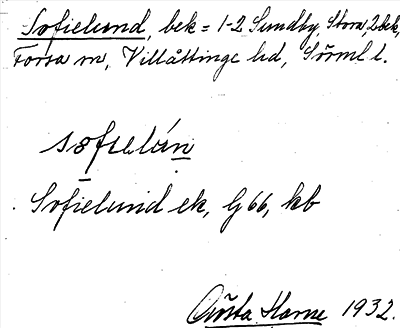 Sofielund, bek = 1-2 Sundby, Stora, 2 bek,
Forsa sn, Villåttinge hd, Sörml l.
sofielún
Sofielund ek, G 66, kb
Gösta Horne 1932.